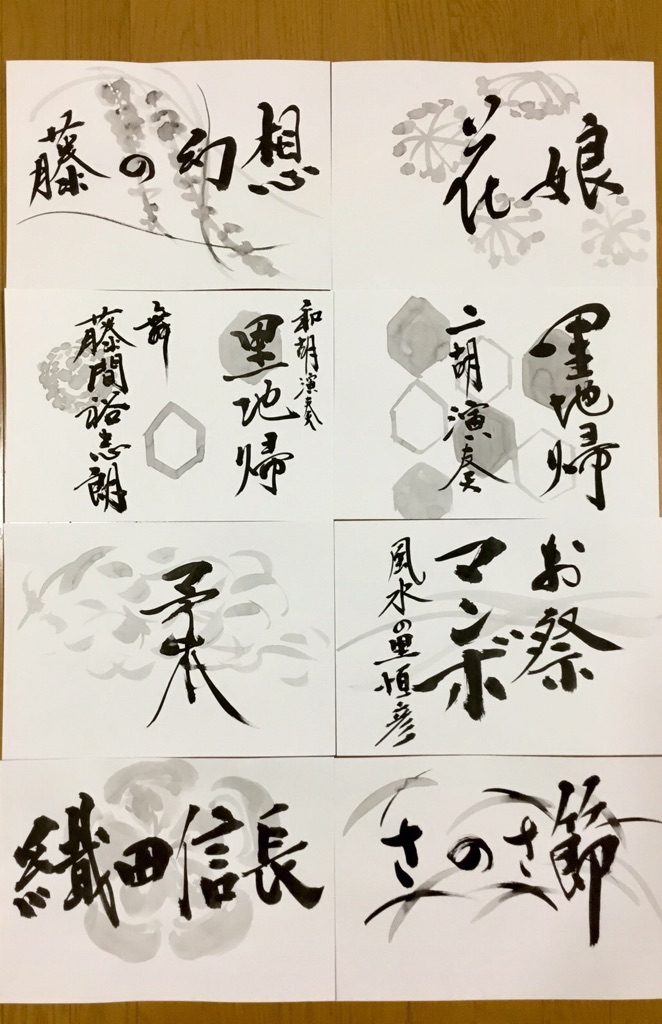 藤の幻想
花娘
和胡演奏
里地帰
舞
藤間裕志朗
里地帰
二胡演奏
柔
お祭
マンボ
風水の里恒彦
織田信長
さのさ節